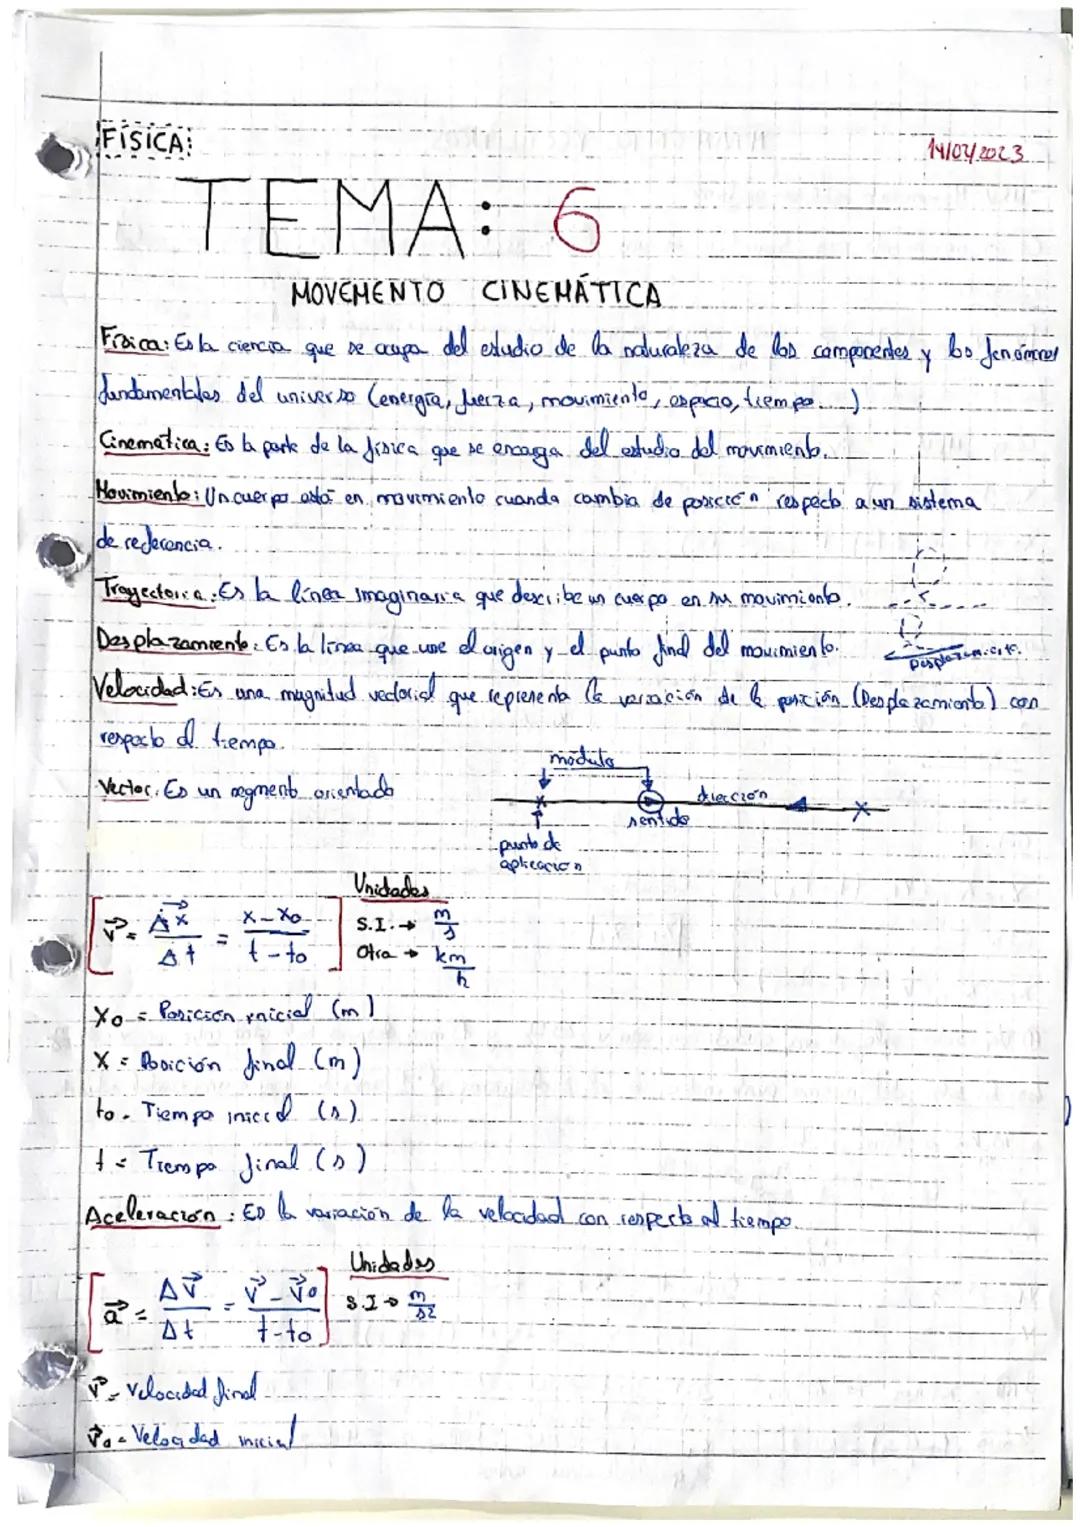 FÍSICA:
14/04/2023
TEMA: 6
MOVEMENTO CINEMÁTICA
Física: Es la ciencia que se ocupa del estudio de la naturaleza de los componentes y los fenómenos
fundamentales del universo (energía, fuerza, movimiento, espacio, tiempo...)
Cinemática: Es la parte de la física que se encarga del estudio del movimiento.
Movimiento: Un cuerpo está en movimiento cuando cambia de posición respecto a un sistema
de referencia.
Trayectoria: Es la línea imaginaria que describe un cuerpo en su movimiento.
Desplazamiento: Es la línea que une el origen y el punto final del movimiento.
Desplazamiento.
Velocidad: Es una magnitud vectorial que representa la variación de la posición (Desplazamiento) con
respecto al tiempo.
módulo
Vector: Es un segmento orientado
dirección
sentido
punto de
aplicación
Unidades
v⃗ = Δx⃗/Δt = x-x₀/t-t₀
S.I. → m/s
Otra → km/h
X₀ = Posición inicial (m)
X = Posición final (m)
t₀ = Tiempo inicial (s)
t = Tiempo final (s)
Aceleración: Es la variación de la velocidad con respecto al tiempo.
Unidades
a⃗ = Δv⃗/Δt = v⃗-v⃗₀/t-t₀
S.I → m/s²
v⃗ = Velocidad final
v⃗₀ = Velocidad inicial